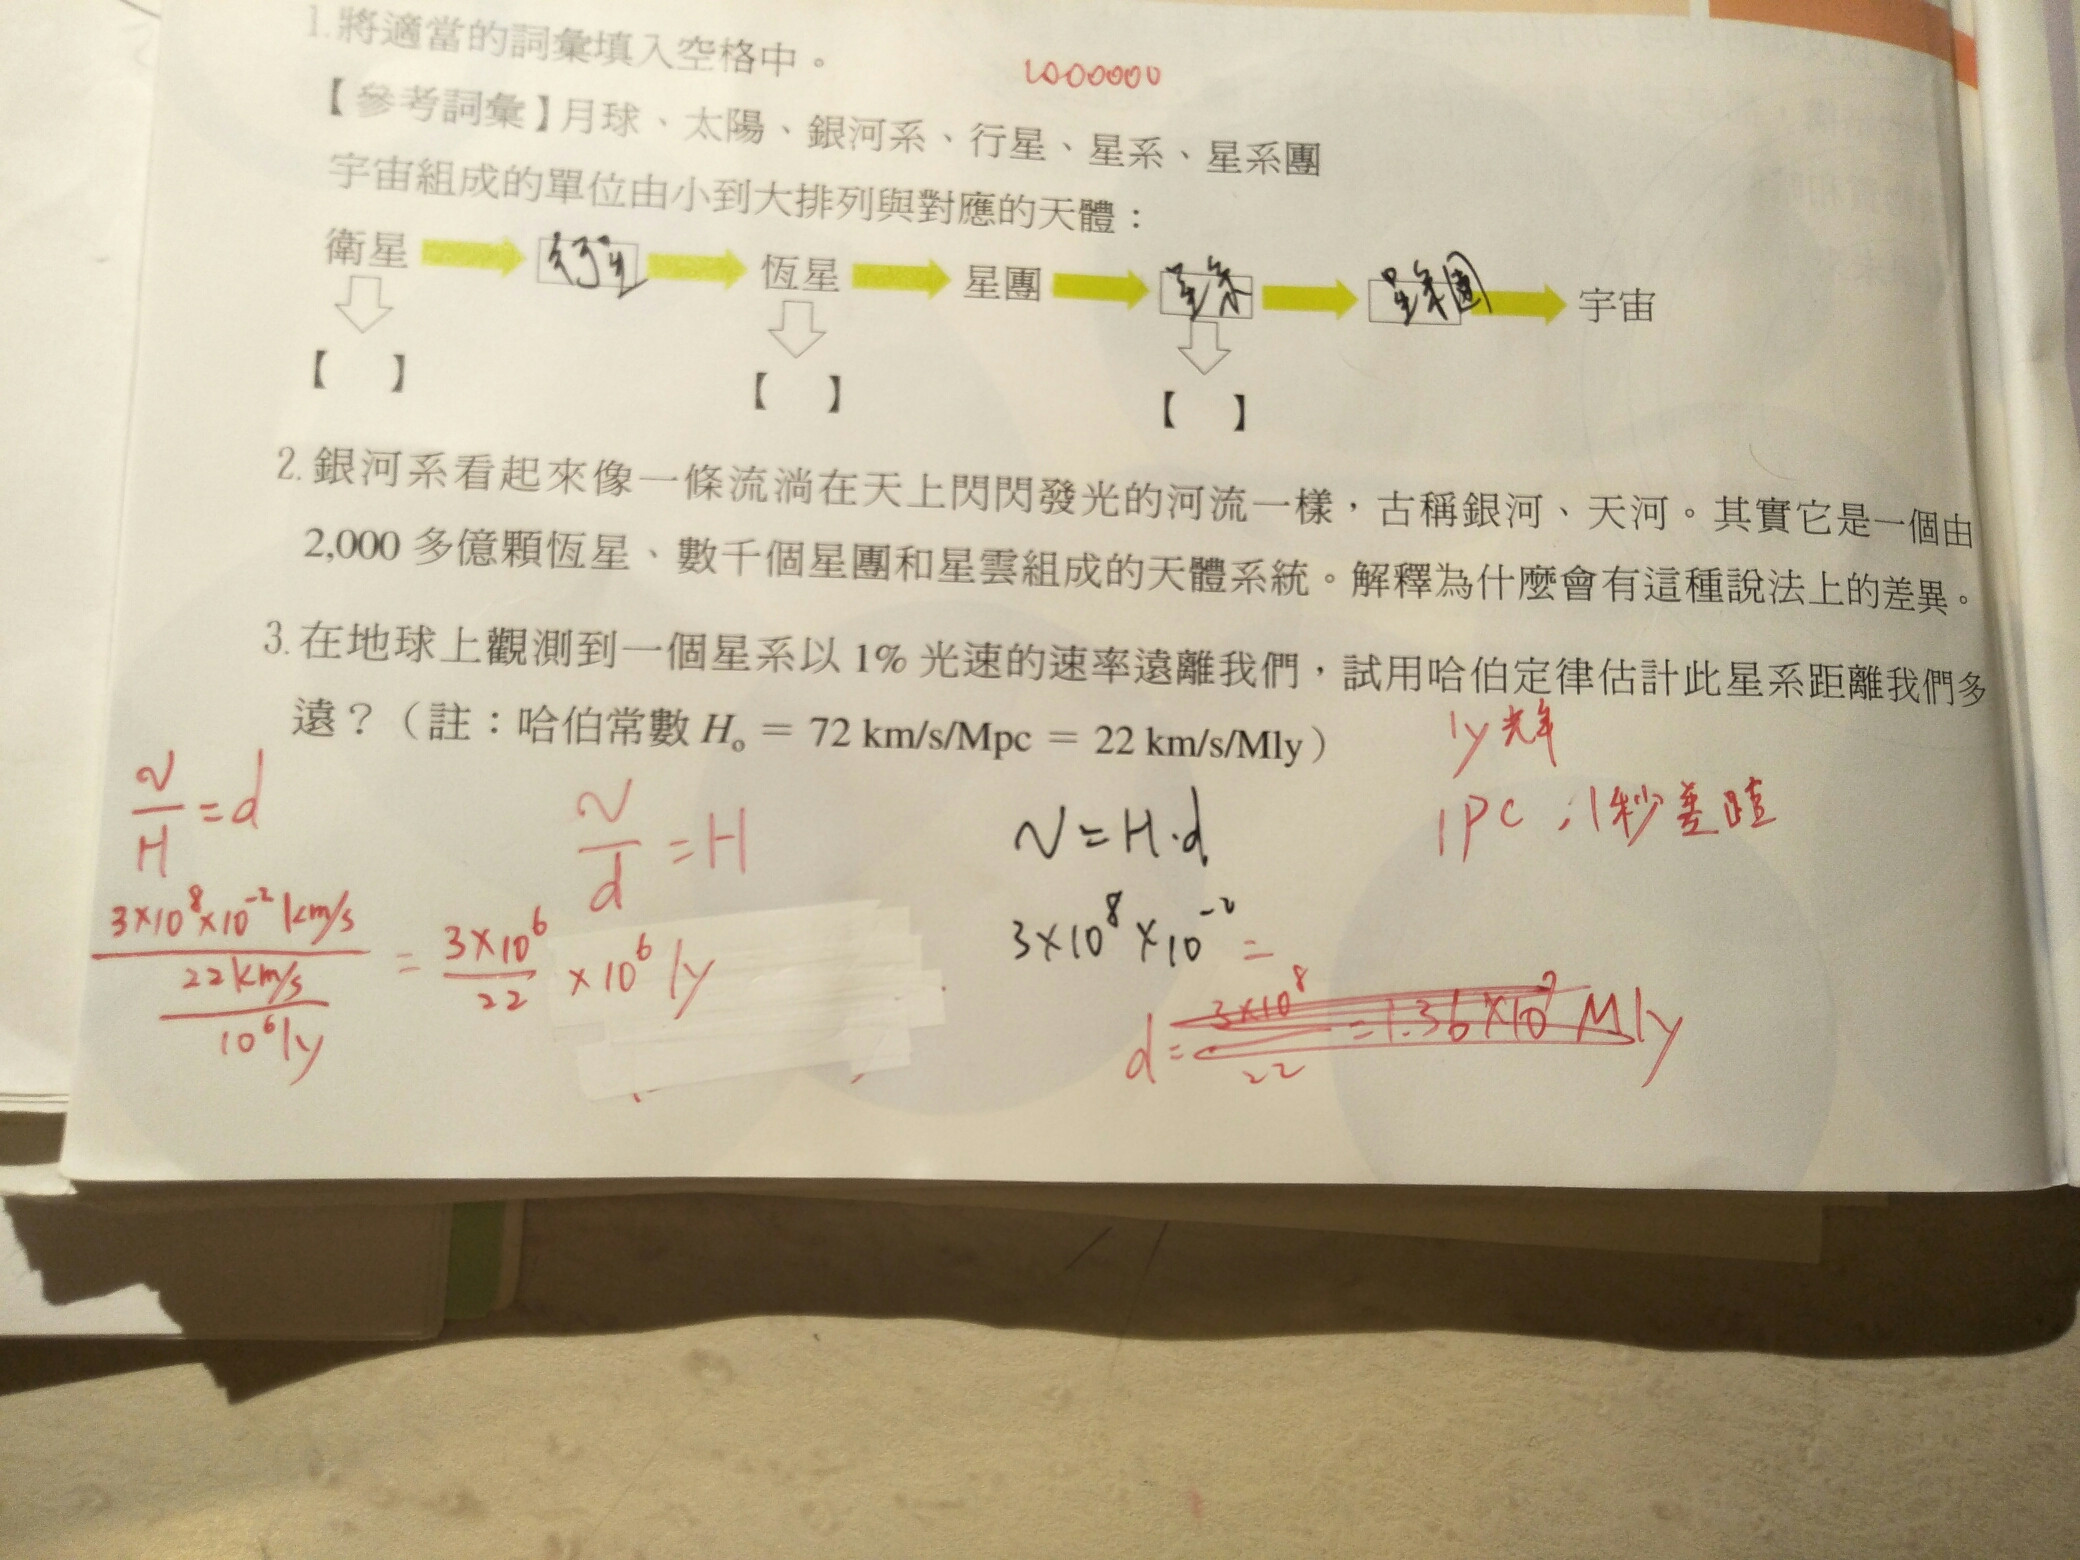 1.將適當的詞彙填入空格中。
1000000
【參考詞彙】月球、太陽、銀河系、行星、星系、星系團
宇宙組成的單位由小到大排列與對應的天體：
衛星 行星 恆星 星團 星系 星系團 宇宙
【 】 【 】 【 】
2.銀河系看起來像一條流淌在天上閃閃發光的河流一樣，古稱銀河、天河。其實它是一個由
2,000 多億顆恆星、數千個星團和星雲組成的天體系統。解釋為什麼會有這種說法上的差異。
3.在地球上觀測到一個星系以 1% 光速的速率遠離我們，試用哈伯定律估計此星系距離我們多
遠？（註：哈伯常數 H₀ = 72 km/s/Mpc = 22 km/s/Mly）
ly 光年
1PC : 1秒差距
v/H = d
v/d = H
v = H·d
3×10⁸×10⁻² km/s / (22 km/s / 10⁶ ly) = 3×10⁶/22 ×10⁶ ly
3×10⁸×10⁻² =
d = 3×10⁸/22 = 1.36×10⁷ Mly